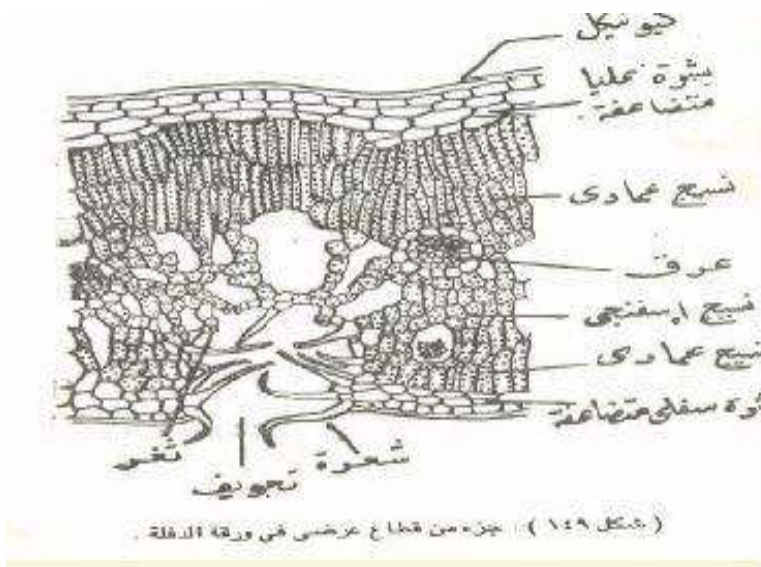 كيوتيكل
بشرة عليا
متضاعفة
نسيج عمادى
عرق
نسيج إسفنجى
نسيج عمادى
بشرة سفلى متضاعفة
ثغر
تجويف
شعرة
( شكل ١٤٩ ) : جزء من قطاع عرضى فى ورقة الدفلة .